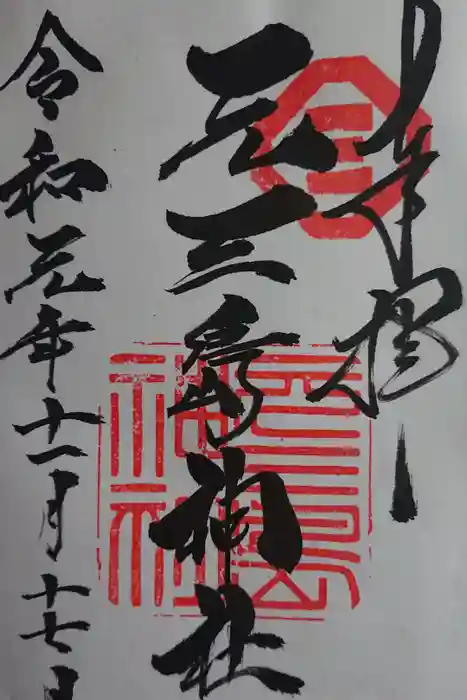 奉拝
元三島神社
令和元年十一月十七日